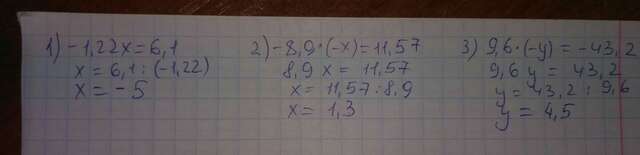 1) -1,22x=6,1
x = 6,1 : (-1,22)
x = -5
2) -8,9·(-x)=11,57
8,9 x = 11,57
x = 11,57 : 8,9
x = 1,3
3) 9,6·(-y) = -43,2
9,6 y = 43,2
y = 43,2 : 9,6
y = 4,5